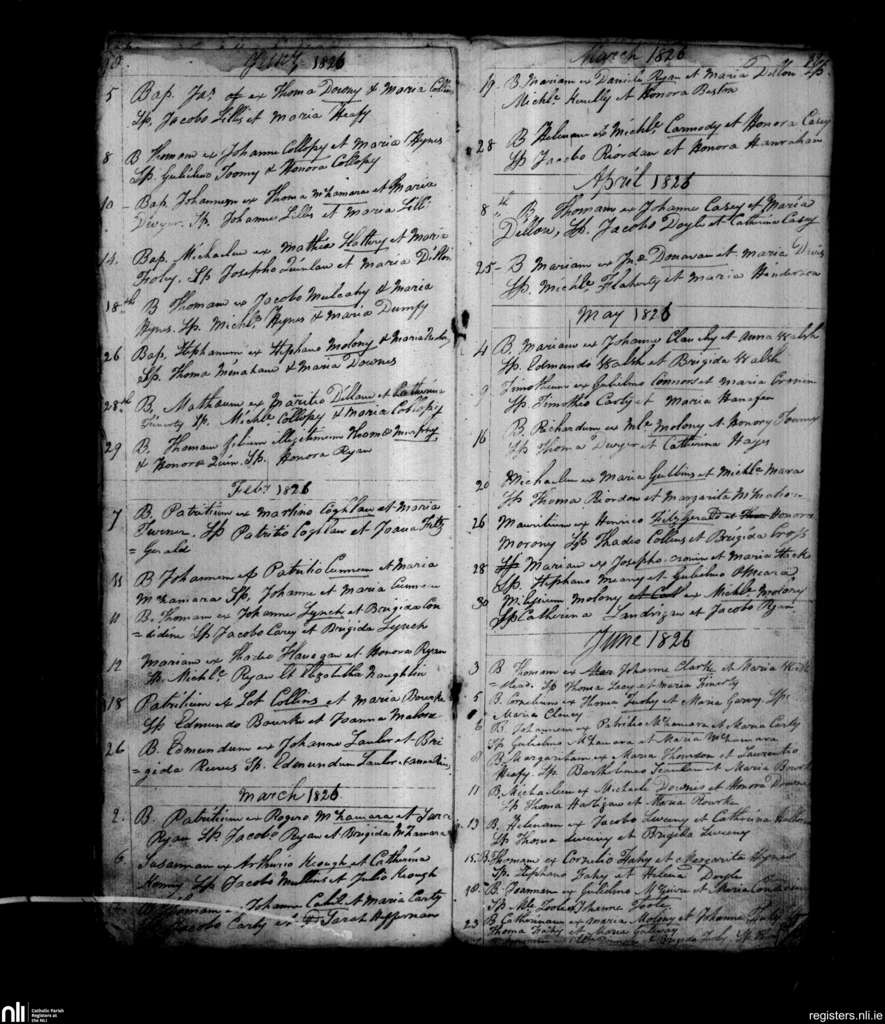 1826
5 Bap. Jas. ex Thoma Downy & Maria
Sp. Jacobo Lillis et Maria Heafy
8 B Thomam ex Johanne Collopy et Maria Hynes
Sp. Gulielmo Toomy & Honora Collopy
10 Bap. Johannem ex Thoma McNamara et Maria
Dwyer. Sp. Johanne Lillis et Maria Lilli
14. Bap. Michaelem ex Mathia Slattery et Maria
Foley. Sp Josepho Quinlan et Maria Dillon
18th B Thomam ex Jacobo Mulcahy & Maria
Hynes. Sp. Michle Hynes & Maria Dumfy
26 Bap. Stephanum ex Stephano Molony & Maria
Sp. Thoma Menahan & Maria Downes
28th B. Mathaeum ex Mauritio Dillon et Catherina
Finerty Sp. Michle Collopy & Maria Collopy
29 B. Thomam filium illegitimum Thomae Murphy
& Honorae Quin. Sp. Honora Ryan
Feby 1826
7 B. Patritium ex Martino Coghlan et Maria
Turner. Sp Patritio Coghlan et Joana Fitz
= Gerald
11 B Johannem ex Patritio Cunneen et Maria
McNamara Sp. Johanne et Maria Cunneen
11 B. Thomam ex Johanne Lynch et Brigida Con
= sidine Sp Jacobo Carey et Brigida Lynch
12 Mariam ex Thadeo Flanegan et Honora Ryan
Sp. Michle Ryan et Elizabetha Naughlin
18 Patritium ex Lot Collins et Maria Bourke
Sp Edmundo Bourke et Joanna Malone
26 B. Edmundum ex Johanne Lawler et Bri
= gida Reeves Sp. Edmundum Lawler
March 1826
2. B. Patritium ex Rogero McNamara et Sara
Ryan Sp. Jacobo Ryan et Brigida McNamara
6. Susannam ex Arthurio Keough et Catherina
Kenny Sp Jacobo Mullins et Julio Keough
Thomam ex Johanne Cahil et Maria Carty
Jacobo Carty et Sarah Heffernan
March 1826
19. B. Mariam ex Daniele Ryan et Maria Dillon Sp.
Michle Heuilly et Honora Beston
28 B Helenam ex Michle Carmody et Honora Casey
Sp Jacobo Riordan et Honora Hanrahan
April 1826
8th B. Thomam ex Johanne Casey et Maria
Dillon, Sp. Jacobo Doyle et Catherina Casey
25- B Mariam ex Jne Donovan et Maria Davis
Sp. Michle Flaherty et Maria Henderson
May 1826
4 B. Mariam ex Johanne Clauchy et Anna Walsh
Sp. Edmundo Walsh et Brigida Walsh
9 Timotheum ex Gulielmo Connors et Maria Cronin
Sp. Timotheo Carty et Maria Hanafen
16 B. Richardum ex Mle Molony et Honory Toomy
Sp Thoma Dwyer et Catherina Hayes
20 Michaelem ex Maria Gubbins et Michle Mara
Sp Thoma Riordan et Margarita McMahon
26 Mauritium ex Henrico Fitzgerald et Honora
Morony Sp Thadeo Collins et Brigida Cross
28 Mariam ex Josepho Cronin et Maria Hick
Sp. Stephano Meany et Gulielmo OMeara
30 Milesium Molony ex Michle Molony
Sp Catherina Landrigan et Jacobo Ryan
June 1826
3 B Thomam ex Johanne Clarke et Maria White
= stead. Sp Thoma Lacy et Maria Finerty
5 B. Cornelium ex Thoma Tuohy et Maria Garvy. Sp:
Maria Clancy
6 B. Johannem ex Patritio McNamara et Maria Carty
Sp Gulielmo McNamara et Maria McNamara
B. Margaritam ex Maria Thornton et Laurentio
Heafy. Sp. Bartholomeo Scanlan et Maria Bourke
11 B. Michaelem ex Michaele Downes et Honora Downes
Sp Thoma Hartigan et Maria Rourke
13 B. Helenam ex Jacobo Sweeny et Catherina
Sp. Thoma Sweeny et Brigida Sweeny
15. B Thomam ex Cornelio Fahy et Margarita Hynes
Sp. Stephano Fahy et Helena Doyle
B. Joannem ex Gulielmo McGuire et Maria
Sp. Mle Toole et Johanna Toole
23 B Catherinam ex Maria Molony et Johanne Fahy Sp
Thoma Fahy et Maria Galway
nli
Catholic Parish
Registers at
the NLI
registers.nli.ie